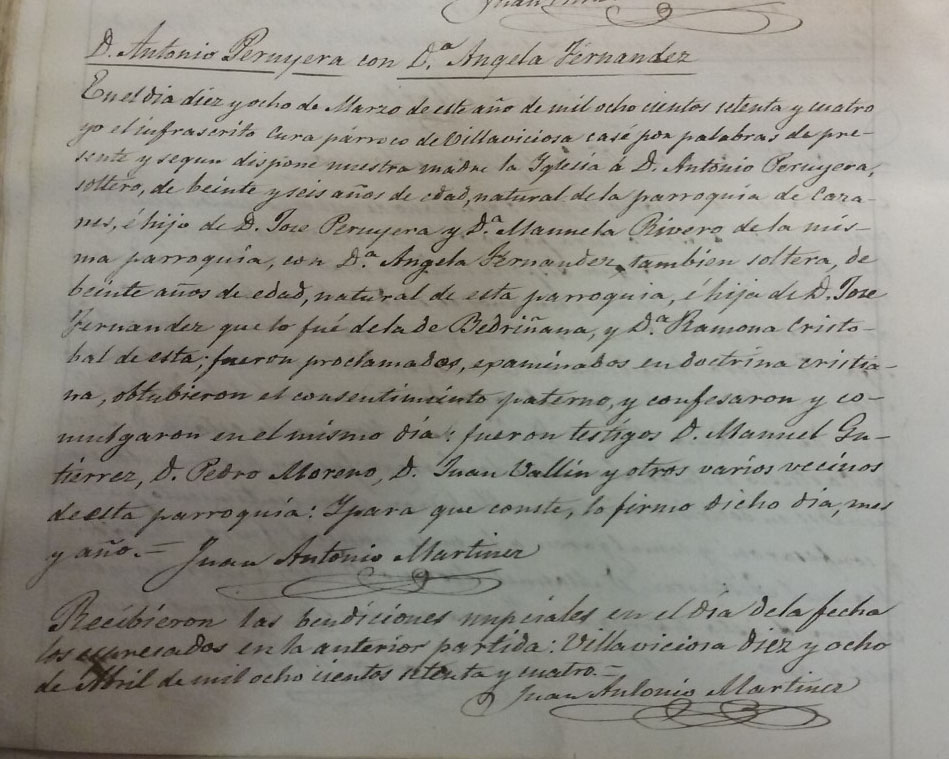 D. Antonio Peruyera con D.ª Angela Fernandez
En el dia diez y ocho de Marzo de este año de mil ocho cientos setenta y cuatro
yo el infrascrito Cura párroco de Villaviciosa casé por palabras de pre-
sente y segun dispone nuestra madre la Iglesia á D. Antonio Peruyera,
soltero, de beinte y seis años de edad, natural de la parroquia de Caza-
nes, é hijo de D. Jose Peruyera y D.ª Manuela Rivero de la mis-
ma parroquia, con D.ª Angela Fernandez, tambien soltera, de
beinte años de edad, natural de esta parroquia, é hija de D. Jose
Fernandez que lo fué de la de Bedriñana, y D.ª Ramona Cristo-
bal de esta; fueron proclamados, examinados en doctrina cristia-
na, obtubieron el consentimiento paterno, y confesaron y co-
mulgaron en el mismo dia: fueron testigos D. Manuel Gu-
tierrez, D. Pedro Moreno, D. Juan Vallin y otros varios vecinos
de esta parroquia: Y para que conste, lo firmo dicho dia, mes
y año.= Juan Antonio Martinez
Recibieron las bendiciones nupciales en el dia de la fecha
los espresados en la anterior partida: Villaviciosa diez y ocho
de Abril de mil ocho cientos setenta y cuatro.=
Juan Antonio Martinez